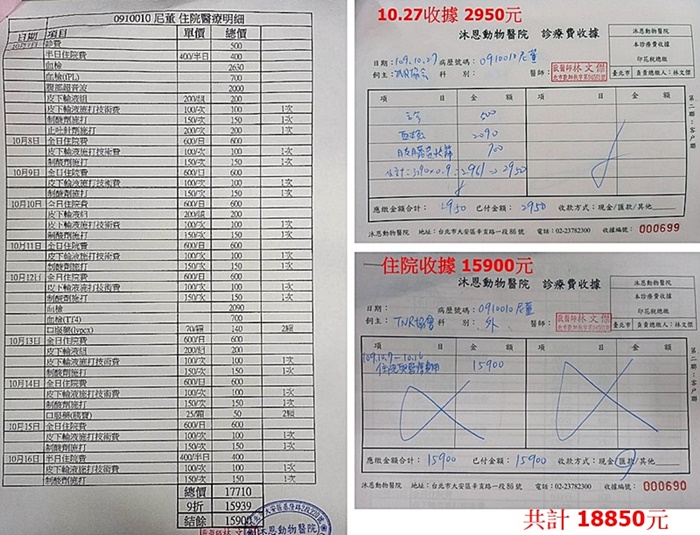 0910010 尼董 住院醫療明細
日期 項目 單價 總價
診費 500
半日住院費 400/半日 400
血檢 2630
血檢(fPL) 700
腹部超音波 2000
皮下輸液組 200/組 200
皮下輸液施打技術費 100/次 100 1次
制酸劑施打 150/次 150 1次
止吐針施打 200/次 200 1次
10月8日 全日住院費 600/日 600
皮下輸液施打技術費 100/次 100 1次
制酸劑施打 150/次 150 1次
10月9日 全日住院費 600/日 600
皮下輸液施打技術費 100/次 100 1次
制酸劑施打 150/次 150 1次
10月10日 全日住院費 600/日 600
皮下輸液組 200/組 200
皮下輸液施打技術費 100/次 100 1次
制酸劑施打 150/次 150 1次
10月11日 全日住院費 600/日 600
皮下輸液施打技術費 100/次 100 1次
制酸劑施打 150/次 150 1次
10月12日 全日住院費 600/日 600
皮下輸液施打技術費 100/次 100 1次
制酸劑施打 150/次 150 1次
血檢 2090
血檢(TT4) 700
70/顆 140 2顆
10月13日 全日住院費 600/日 600
皮下輸液組 200/組 200
皮下輸液施打技術費 100/次 100 1次
制酸劑施打 150/次 150 1次
10月14日 全日住院費 600/日 600
皮下輸液施打技術費 100/次 100 1次
制酸劑施打 150/次 150 1次
25/顆 50 2顆
10月15日 全日住院費 600/日 600
皮下輸液施打技術費 100/次 100 1次
制酸劑施打 150/次 150 1次
10月16日 半日住院費 400/半日 400
皮下輸液施打技術費 100/次 100 1次
制酸劑施打 150/次 150 1次
總價 17710
9折 15939
結餘 15900
沐恩動物醫院
10.27收據 2950元
沐恩動物醫院 診療費收據
沐恩動物醫院
本診療費收據
印花稅總繳
臺北市 負責總繳人:林文傑
日期: 109.10.27 病歷號碼: 0910010尼董
飼主: 科 別: 醫師: 獸醫師林文傑
項 目 金 額 項 目 金 額
500
2090
700
2950
第二聯:客戶聯
應繳金額合計: 2950 已付金額: 2950 收款方式:現金/匯款/其他
沐恩動物醫院 地址:台北市大安區辛亥路一段86號 電話:02-23782300 收據編號: 000699
住院收據 15900元
沐恩動物醫院 診療費收據
沐恩動物醫院
本診療費收據
印花稅總繳
臺北市 負責總繳人:林文傑
日期: 病歷號碼: 0910010尼董
飼主: TNR協會 科 別: 外 醫師: 獸醫師林文傑
項 目 金 額 項 目 金 額
109.10.7-10.16
住院及醫療費用 15900
第二聯:客戶聯
應繳金額合計: 15900 已付金額: 15900 收款方式:現金/匯款/其他
沐恩動物醫院 地址:台北市大安區辛亥路一段86號 電話:02-23782300 收據編號: 000690
共計 18850元